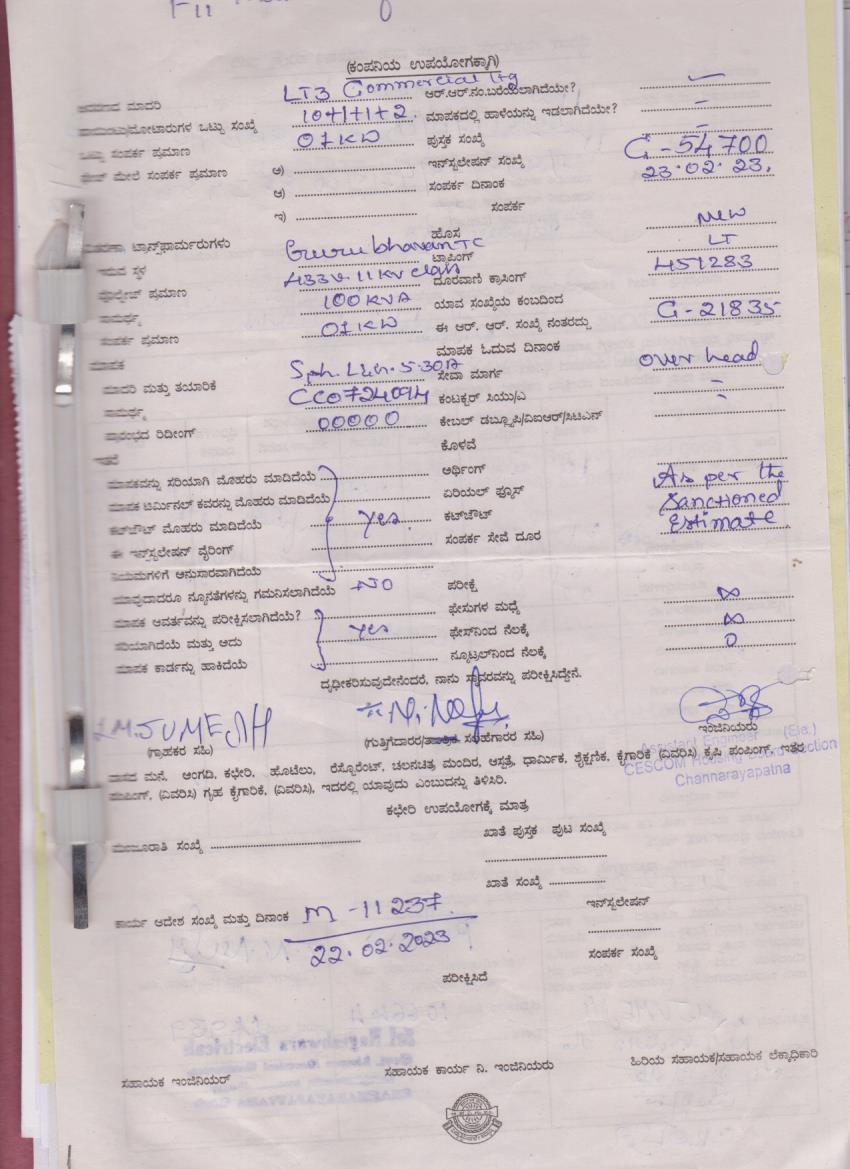 (ಕಂಪನಿಯ ಉಪಯೋಗಕ್ಕಾಗಿ)
ಮಾದರಿ LT3 Commercial ltg ಆರ್.ಆರ್.ನಂ.ಬರೆಯಲಾಗಿದೆಯೇ?
ಒಟ್ಟು ಸಂಖ್ಯೆ 10+1+1+2. ಮಾಪಕದಲ್ಲಿ ಹಾಳೆಯನ್ನು ಇಡಲಾಗಿದೆಯೇ? –
ಒಟ್ಟು ಸಂಪರ್ಕ ಪ್ರಮಾಣ 01KW ಪುಸ್ತಕ ಸಂಖ್ಯೆ –
ಮೇಲೆ ಸಂಪರ್ಕ ಪ್ರಮಾಣ ಅ) ಇನ್‌ಸ್ಟಲೇಷನ್ ಸಂಖ್ಯೆ G-54700
ಆ) ಸಂಪರ್ಕ ದಿನಾಂಕ 23.02.23.
ಇ) ಸಂಪರ್ಕ
ಹೊಸ New
ಟ್ರಾನ್ಸ್‌ಫಾರ್ಮರುಗಳು
ಇರುವ ಸ್ಥಳ Gurubhavan TC ಟ್ಯಾಪಿಂಗ್ LT
ಪ್ರಮಾಣ 433V-11KV class ದೂರವಾಣಿ ಕ್ರಾಸಿಂಗ್ 451283
ಸಾಮರ್ಥ್ಯ 100KVA ಯಾವ ಸಂಖ್ಯೆಯ ಕಂಬದಿಂದ
ಸಂಪರ್ಕ ಪ್ರಮಾಣ 01KW ಈ ಆರ್. ಆರ್. ಸಂಖ್ಯೆ ನಂತರದ್ದು G-21835
ಮಾಪಕ ಮಾಪಕ ಓದುವ ದಿನಾಂಕ
ಮಾದರಿ ಮತ್ತು ತಯಾರಿಕೆ Sph. L&h. 5-30A ಸೇವಾ ಮಾರ್ಗ over head
ಸಾಮರ್ಥ್ಯ CC0724094 ಕಂಟಕ್ಟರ್ ಸಿಯು/ಎ –
ಪ್ರಾರಂಭದ ರಿಡಿಂಗ್ 00000 ಕೇಬಲ್ ಡಬ್ಲ್ಯೂಪಿ/ವಿಐಆರ್/ಸಿಟಿಎನ್ –
ಇತರೆ ಕೊಳವೆ
ಮಾಪಕವನ್ನು ಸರಿಯಾಗಿ ಮೊಹರು ಮಾಡಿದೆಯೆ ಅರ್ಥಿಂಗ್ As per the
ಮಾಪಕ ಟರ್ಮಿನಲ್ ಕವರನ್ನು ಮೊಹರು ಮಾಡಿದೆಯೆ ಏರಿಯಲ್ ಫ್ಯೂಸ್ Sanctioned
ಕಟ್‌ಔಟ್ ಮೊಹರು ಮಾಡಿದೆಯೆ Yes. ಕಟ್‌ಔಟ್ Estimate.
ಈ ಇನ್‌ಸ್ಟಲೇಷನ್ ವೈರಿಂಗ್ ಸಂಪರ್ಕ ಸೇವೆ ದೂರ
ನಿಯಮಗಳಿಗೆ ಅನುಸಾರವಾಗಿದೆಯೆ
ಯಾವುದಾದರೂ ನ್ಯೂನತೆಗಳನ್ನು ಗಮನಿಸಲಾಗಿದೆಯೆ NO ಪರೀಕ್ಷೆ
ಮಾಪಕ ಆವರ್ತವನ್ನು ಪರೀಕ್ಷಿಸಲಾಗಿದೆಯೆ? ಫೇಸುಗಳ ಮಧ್ಯೆ ∞
ಸರಿಯಾಗಿದೆಯೆ ಮತ್ತು ಅದು Yes ಫೇಸ್‌ನಿಂದ ನೆಲಕ್ಕೆ ∞
ಮಾಪಕ ಕಾರ್ಡನ್ನು ಹಾಕಿದೆಯೆ ನ್ಯೂಟ್ರಲ್‌ನಿಂದ ನೆಲಕ್ಕೆ 0
ದೃಢೀಕರಿಸುವುದೇನೆಂದರೆ, ನಾನು ಸ್ಥಾವರವನ್ನು ಪರೀಕ್ಷಿಸಿದ್ದೇನೆ.
(ಗ್ರಾಹಕರ ಸಹಿ) (ಗುತ್ತಿಗೆದಾರರ/ ಸಲಹೆಗಾರರ ಸಹಿ) ಇಂಜಿನಿಯರು
Assistant Engineer (Ele.)
CESCOM Housing Board Section
Channarayapatna
ವಾಸದ ಮನೆ, ಅಂಗಡಿ, ಕಛೇರಿ, ಹೊಟೆಲು, ರೆಸ್ಟೊರೆಂಟ್, ಚಲನಚಿತ್ರ ಮಂದಿರ, ಆಸ್ಪತ್ರೆ, ಧಾರ್ಮಿಕ, ಶೈಕ್ಷಣಿಕ, ಕೈಗಾರಿಕೆ (ವಿವರಿಸಿ) ಕೃಷಿ ಪಂಪಿಂಗ್, ಇತರ
ಪಂಪಿಂಗ್, (ವಿವರಿಸಿ) ಗೃಹ ಕೈಗಾರಿಕೆ, (ವಿವರಿಸಿ), ಇದರಲ್ಲಿ ಯಾವುದು ಎಂಬುದನ್ನು ತಿಳಿಸಿರಿ.
ಕಛೇರಿ ಉಪಯೋಗಕ್ಕೆ ಮಾತ್ರ
ಮಂಜೂರಾತಿ ಸಂಖ್ಯೆ ಖಾತೆ ಪುಸ್ತಕ ಪುಟ ಸಂಖ್ಯೆ
ಖಾತೆ ಸಂಖ್ಯೆ
ಕಾರ್ಯ ಆದೇಶ ಸಂಖ್ಯೆ ಮತ್ತು ದಿನಾಂಕ M-11237. ಇನ್‌ಸ್ಟಲೇಷನ್
22.02.2023 ಸಂಪರ್ಕ ಸಂಖ್ಯೆ
ಪರೀಕ್ಷಿಸಿದೆ
ಸಹಾಯಕ ಇಂಜಿನಿಯರ್ ಸಹಾಯಕ ಕಾರ್ಯ ನಿ. ಇಂಜಿನಿಯರು ಹಿರಿಯ ಸಹಾಯಕ/ಸಹಾಯಕ ಲೆಕ್ಕಾಧಿಕಾರಿ